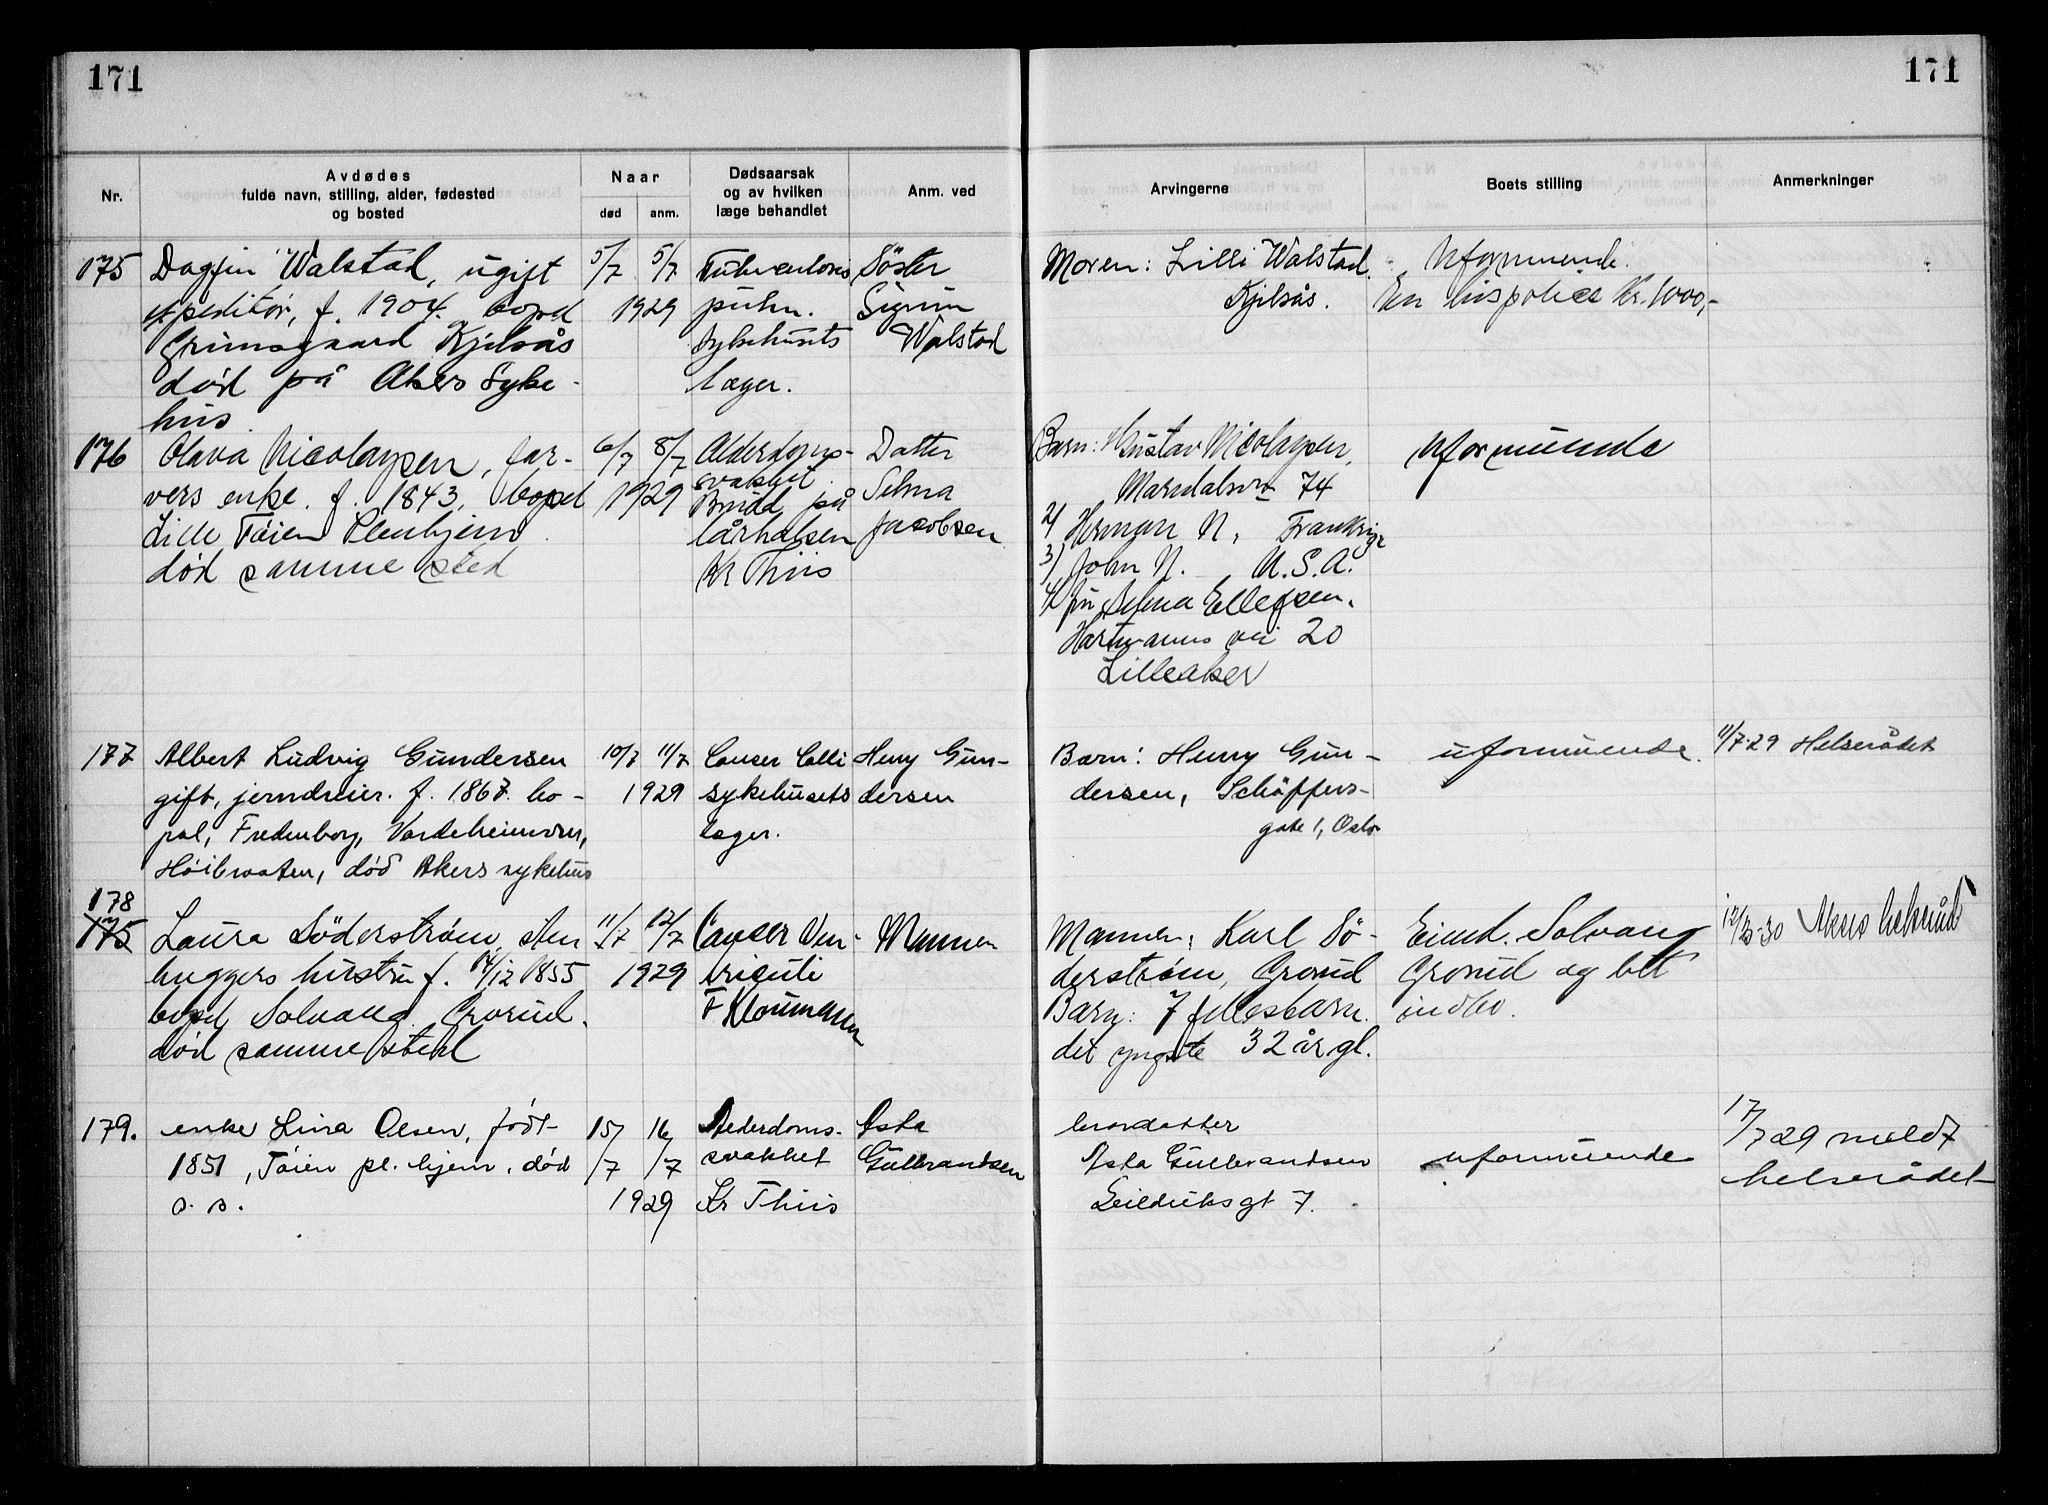 171
171
Nr.
Avdødes
fulde navn, stilling, alder, fødested
og bosted
Naar
død
anm.
Dødsaarsak
og av hvilken
læge behandlet
Anm. ved
Arvingerne
Boets stilling
Anmerkninger
175
Dagfin Walstad, ugift
expeditør, f. 1904. bopel
Grinsgaard Kjelsås
død på Akers Syke-
hus.
5/7 5/7
1929
Tuberculosis
pulm.
sykehusets
læger.
Søster
Sigrun
Walstad
Moren: Lilli Walstad.
Kjelsås.
Uformuende.
En livspolice Kr. 1000,-
176
Olava Nicolaysen, far-
vers enke. f. 1843. bopel
Lille Tøien Pleiehjem
død samme sted
6/7 8/7
1929
Alderdoms-
svakhet.
Brudd på
lårhalsen
Kr Thiis
Datter
Selma
Jacobsen
Barn: 1/ Gustav Nicolaysen,
Maridalsvn 74
2/ Herman N.
3/ John N. U.S.A.
4/ fru Selma Ellefsen,
Hartmanns vei 20
Lilleaker
Uformuende
177
Albert Ludvig Gundersen
gift, jerndreier. f. 1867. bo-
pel, Fredenborg, Vardeheimveien,
Høibraaten, død Akers sykehus
10/7 11/7
1929
Cancer Colli
sykehusets
læger.
Henry Gun-
dersen
Barn: Henry Gun-
dersen, Schäffers-
gate 1, Oslo
uformuende.
11/7-29 Helserådet
178
175
Laura Söderström, sten
huggers hustru f. 14/12 1855
bopel Solvang Grorud.
død samme sted
11/7 12/7
1929
Cancer Ven-
triculi
F Kloumann
Mannen
Mannen: Karl Sö-
derström, Grorud
Barn: 7 fellesbarn.
det yngste 32 år gl.
Eiend. Solvang
Grorud og litt
indbo.
12/3-30 Akers helseråd
179.
enke Lina Olsen, født
1851, Tøien pl. hjem, død
s. s.
15/7 16/7
1929
Alderdoms-
svakhet
Kr Thiis
Asta
Gulbrandsen
brordatter
Asta Gulbrandsen
Seilduksgt 7.
uformuende
17/7 29 meldt
helserådet